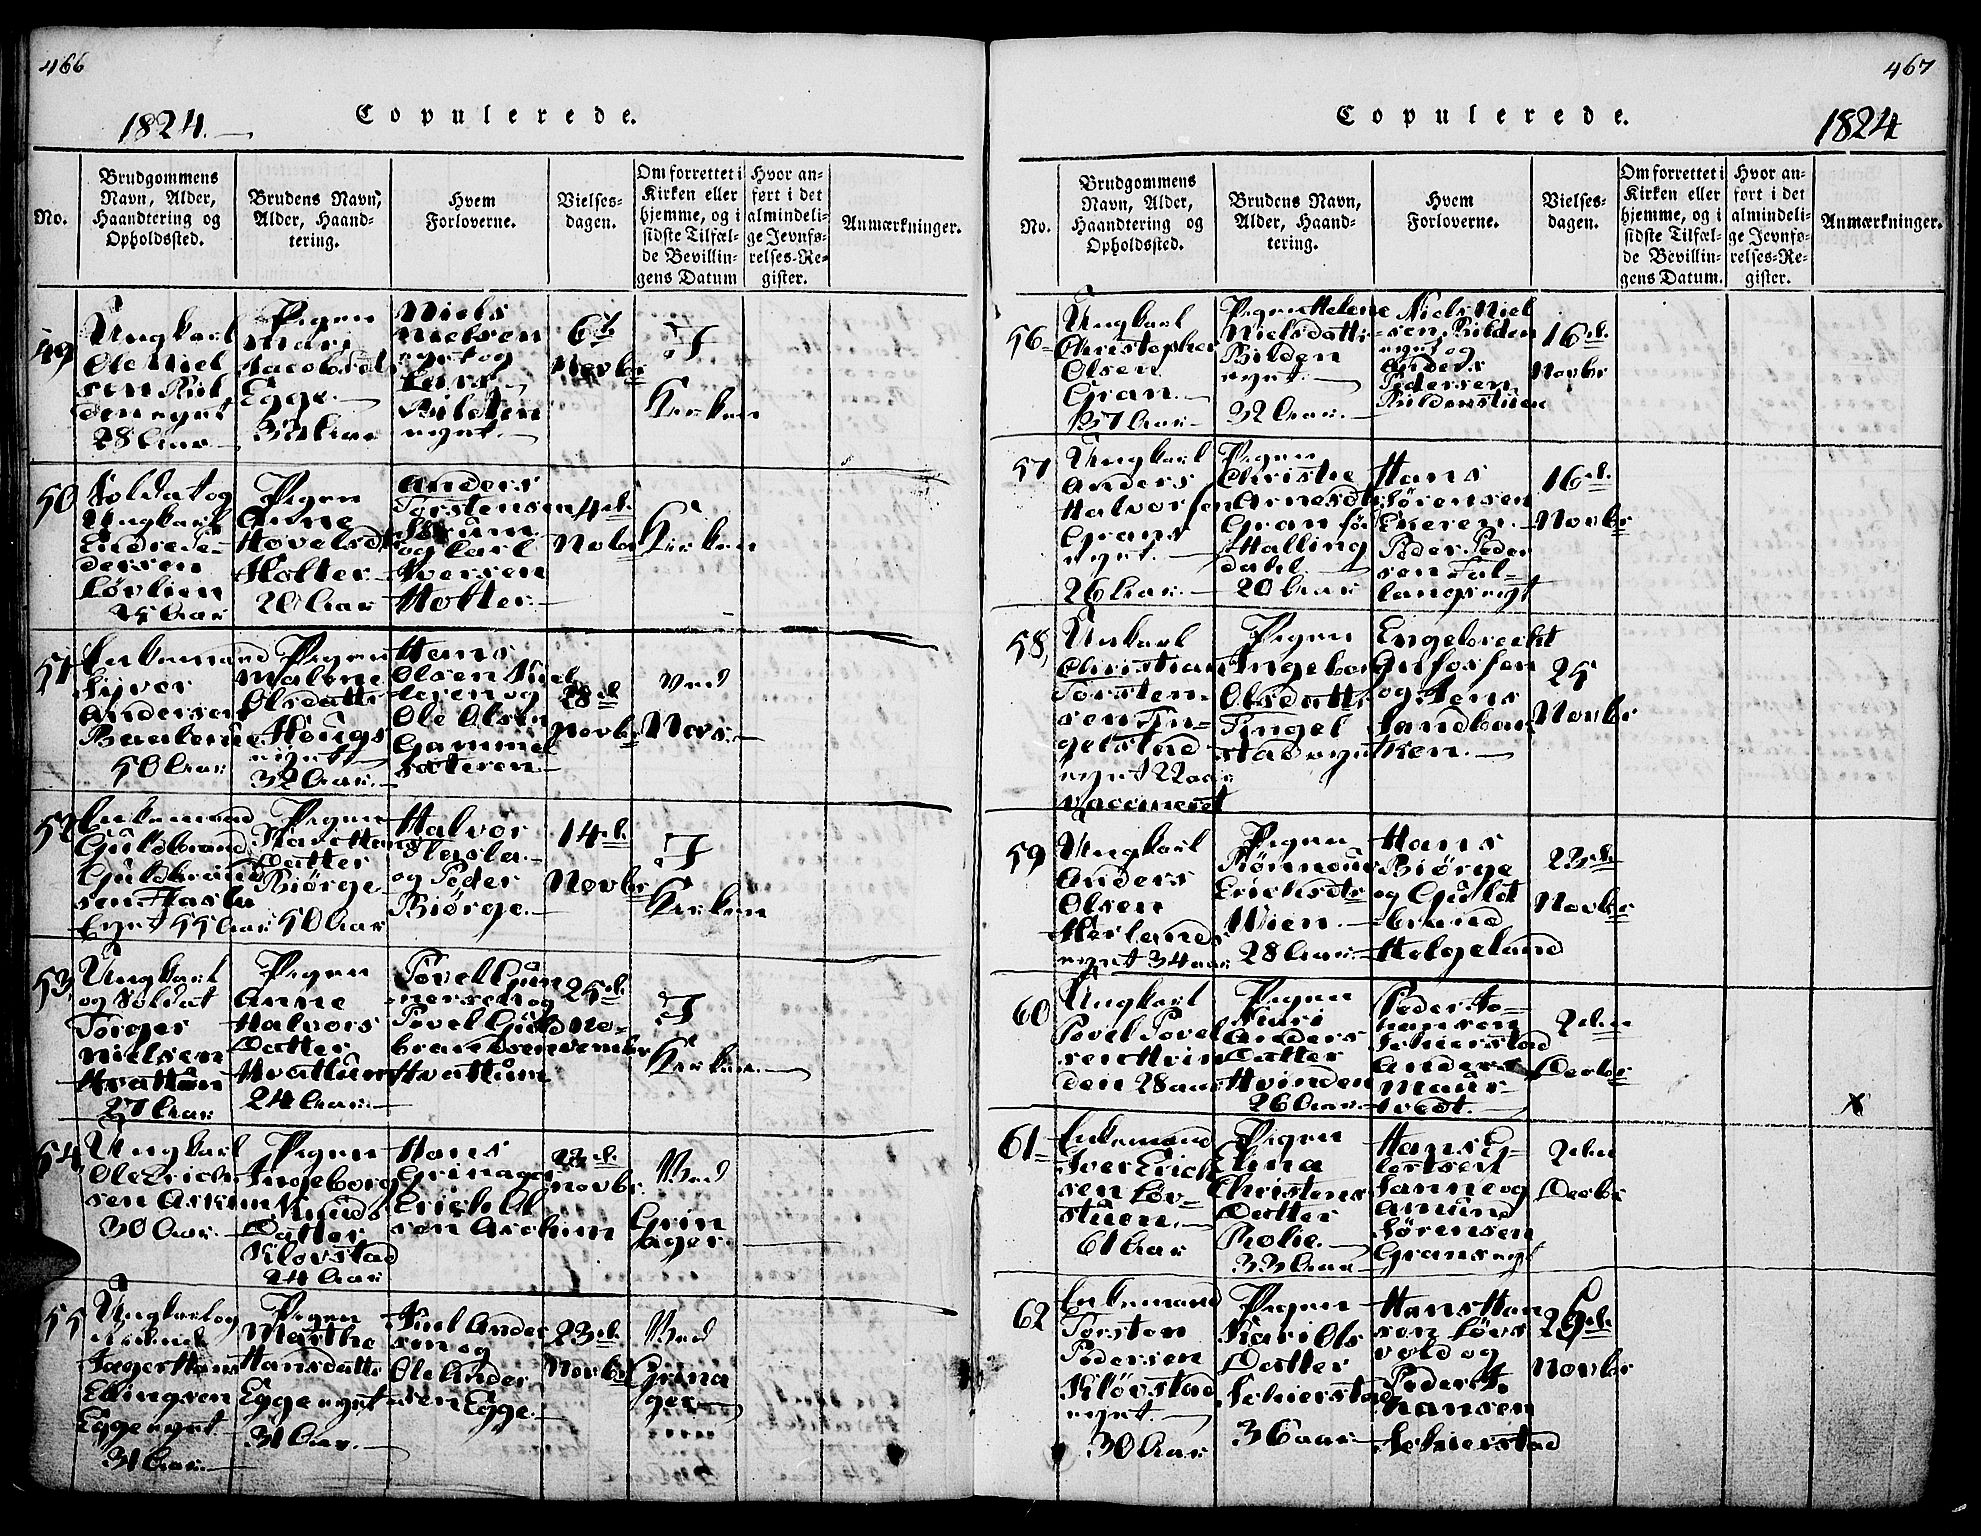 466
1824.
Copulerede.
No.
Brudgommens
Navn, Alder,
Haandtering og
Opholdssted.
Brudens Navn,
Alder, Haand-
tering.
Hvem
Forloverne.
Vielses-
dagen.
Om forrettet i
Kirken eller
hjemme, og i
sidste Tilfæl-
de Bevillin-
gens Datum
Hvor an-
ført i det
almindeli-
ge Jevnfø-
relses-Re-
gister.
Anmærkninger.
49
Ungkarl
Ole Niel
sen Bil
den eynt
28 Aar
Pigen
Mari
Jacobsdt
Egge.
32 Aar
Niels
Nielsen
eynt og
Lars
Bilden
eynt.
6t
Novbr
I
Kirken
50
Soldat og
Ungkarl
Endre
dersen
Løvlien
25 Aar
Pigen
Anne
Hovelsdt
Holter
20 Aar
Anders
Torstensen
og Carl
Iversen
Holter.
4de
Kirken
51
Enkemand
Siver
Andersen
50 Aar
Pigen
Malene
Olsdatter
Hougs
eynt
32 Aar.
Hans
Olsen
og
Ole Olsen
Gammel
sæteren
28de
Novbr
ved
Næs.
52
Enkemand
Guldbrand
Guldbrand
sen Hasle
Eynt 55 Aar
Pigen
Datter
Biørge
50 Aar
Halvor
Hasle
og Peder
Biørge.
14de
Novbr
I
Kirken
53
Ungkarl
og Soldat
Torger
Nielsen
Hvattum
27 Aar
Pigen
Anne
Halvors
Datter
Hvattum
24 Aar.
Povel Gun
nersen og
Povel Guld
brandsen
Hvattum
25de
No-
vember
I
Kirken.
54
Ungkarl
Ole Erich
sen Askim
30 Aar.
Pigen
Ingeborg
Knuds
Datter
Kløvstad
24 Aar
Hans
Grinager
Erich Ol
sen Aschim
22de
Novbr
Ved
Grin
ager.
55
Ungkarl og
Jæger Hans
Ellingsen
Egge eynt
31 Aar.
Pigen
Marthe
Hansdatter
Egge eynt
31 Aar.
Niel Ander
sen og
Ole Ander
sen Egge.
23de
Novbr
Ved
Grina
ger
467
Copulerede.
1824
No.
Brudgommens
Navn, Alder,
Haandtering og
Opholdssted.
Brudens Navn,
Alder, Haand-
tering.
Hvem
Forloverne.
Vielses-
dagen.
Om forrettet i
Kirken eller
hjemme, og i
sidste Tilfæl-
de Bevillin-
gens Datum.
Hvor an-
ført i det
almindeli-
ge Jevnfø-
relses-Re-
gister.
Anmærkninger.
56
Ungkarl
Christopher
Olsen
Gran.
37 Aar
Pigen Helene
Nielsdatter
Bilden
eynt.
32 Aar.
Niels Niel
sen Bilden
eynt og
Anders
Pedersen
Bildenstuen
16de
Novbr
57
Ungkarl
Anders
Halvorsen
Grans
eynt.
26 Aar.
Pigen
Christie
Arnesdt
Gran fød
i Halling
dahl.
20 Aar
Hans
Sørensen
Egeren.
Peder Peder
sen Fal-
langs eygt
16de
Novbr
58,
Unkarl
Christian
Torsten
sen Tin-
gelstad
eynt 22 aar
vaccineret
Pigen
Ingeborg
Olsdatter
Tingel
stad eynt
Engebrecht
og Jens
Sandbak
ken.
25
Novbr
59
Ungkarl
Anders
Olsen
Herlands
eynt 34 aar
Pigen
Rønnoug
Erichsdtr
Wien.
28 Aar.
Hans
Biørge
og Guld
brand
Helgeland
23de
Novbr
60
Ungkarl
Povel Povel
sen Hvin
den 28 aar
Pigen
Siuri
Anders
Datter
Hvinden
26 Aar.
Peder Jo-
hansen
Schierstad
Anders
Maur-
tvedt.
2den
Decbr
61
Enkemand
Iver Erich
sen Løv-
stuen.
61 Aar
Pigen
Elina
Christens
Datter
Rohe.
33 Aar
Hans Ey-
lertsen
Sanne og
Amund
Sørensen
Grans eygt
2den
Decbr
62
Enkemand
Torsten
Pedersen
Kløvstad
eynt.
30 Aar
Pigen
Kari Ols
Datter
Schierstad
36 aar
Hans Han
sen Løvs
vold og
Peder Jo
hansen
Schierstad
26de
Novbr